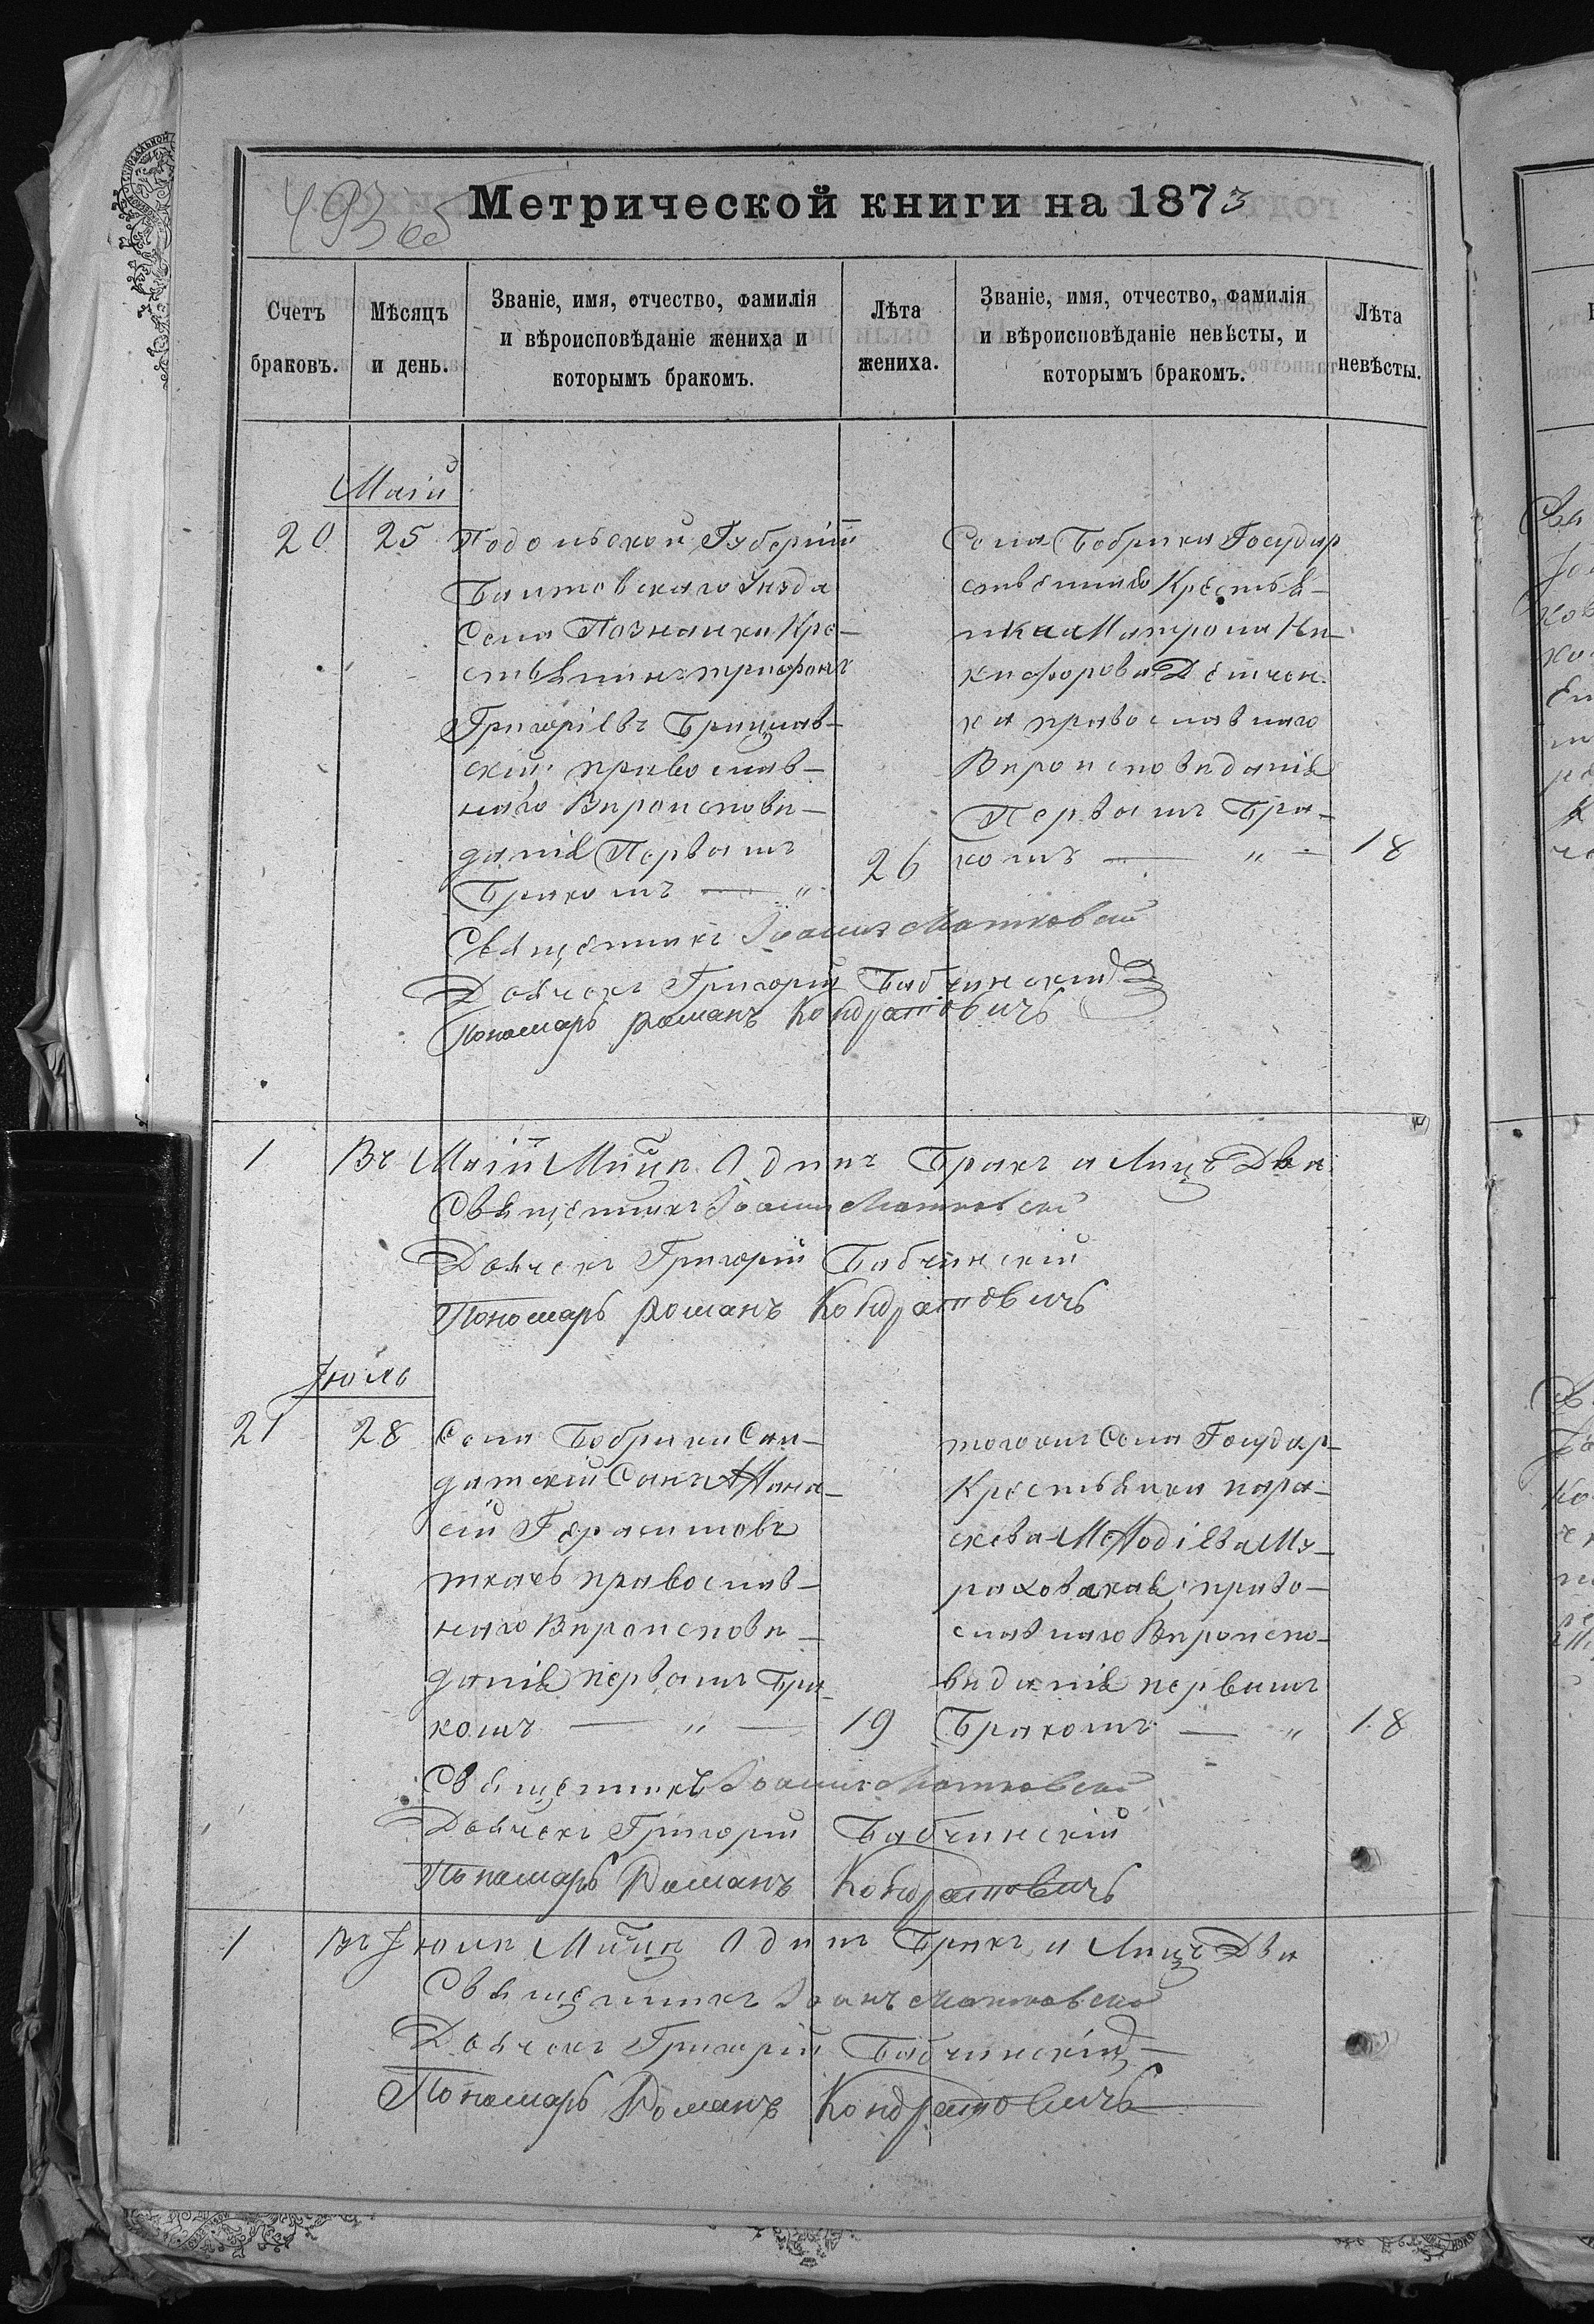 493 об
Метрической книги на 1873
Счетъ браковъ.
Мѣсяцъ и день.
Званіе, имя, отчество, фамилія
и вѣроисповѣданіе жениха и
которымъ бракомъ.
Лѣта жениха.
Званіе, имя, отчество, фамилія
и вѣроисповѣданіе невѣсты, и
которымъ бракомъ.
Лѣта невѣсты.
Маій
20 25
Подольской Губерніи
Балтовскаго Уѣзда
Села Познанки Кре-
стьянинъ трифонъ
Григоріевъ Брицлав-
скій православ-
наго Вѣроисповѣ-
данія Первымъ
Бракомъ — "
26
Села Бобрика Государ
ственнаго Крестья-
нина Матрона Ни-
кифорова Дейчен-
ка православнаго
Вѣроисповѣданія
Первымъ Бра-
комъ — " —
18
Священникъ Іоаннъ Матковскій
Дьячекъ Григорій Бабчинскій
Пономарь Романъ Кондратовичъ
1 Въ Маіи М-цѣ Одинъ Бракъ и Лицъ Два
Священникъ Іоаннъ Матковскій
Дьячекъ Григорій Бабчинскій
Пономарь Романъ Кондратовичъ
Іюль
21 28
Села Бобрики Сол-
датскій Сынъ Аѳана-
сій Герасимовъ
ткачъ православ-
наго Вѣроисповѣ-
данія первымъ Бра-
комъ — " —
19
тогожъ Села Государ-
Крестьянка пара-
скева Меѳодіева Му-
раховская право-
славнаго Вѣроиспо-
вѣданія первымъ
Бракомъ — "
18
Священникъ Іоаннъ Матковскій
Дьячекъ Григорій Бабчинскій
Пономарь Романъ Кондратовичъ
1 Въ Іюлѣ М-цѣ Одинъ Бракъ и Лицъ Два
Священникъ Іоанъ Матковскій
Дьячекъ Григорій Бабчинскій
Пономарь Романъ Кондратовичъ